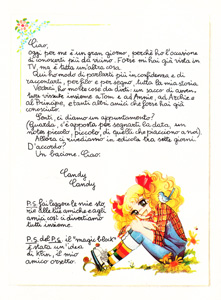 Ciao,
oggi per me è un gran giorno, perché ho l'occasione
di conoscerti più da vicino. Forse mi hai già vista in
TV, ma è tutta un'altra cosa.
Qui ho modo di parlarti più in confidenza e di
raccontarti, per filo e per segno, tutta la mia storia.
Vedrai, ho molte cose da dirti: un sacco di avven-
ture vissute insieme a Tom e ad Annie, ad Archie e
al Principe, e tanti altri amici che forse hai già
conosciuto.
Senti, ci diamo un appuntamento?
(Guarda, c'è apposta per segnarti la data, un
molto piccolo, piccolo, di quelli che piacciono a noi).
Allora ci rivediamo in edicola tra sette giorni.
D'accordo?
Un bacione. Ciao.
Candy
Candy
P.S. Fai leggere la mia sto-
ria alle tue amiche e agli
amici, così ci divertiamo
tutti insieme.
P.S. del P.S. il "magic black"
è stata un'idea
di Klin, il mio
amico orsetto.